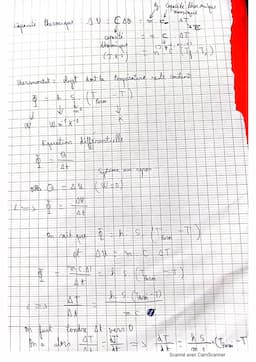 Capacité thermique ΔU = C ΔT
capacité thermique massique
= m c ΔT
capacité thermique
(J.K⁻¹)
= m c (Tf - Ti)
Thermostat : objet dont la température reste constante
Φ = h S (Ttherm - T)
W W m⁻² K⁻¹ m² K
Equation différentielle
Φ = Q / Δt
Système au repos
Q = ΔU (W=0)
<=> Φ = ΔU / Δt
On sait que Φ = h S (Ttherm - T)
et ΔU = m C ΔT
Φ = m C ΔT / Δt = h S (Ttherm - T)
<=> ΔT / Δt = h S (Ttherm - T) / m C
On fait tendre Δt vers 0
On a alors ΔT / Δt = dT / dt => dT / dt = h S / m c (Ttherm - T
Scanné avec CamScanner